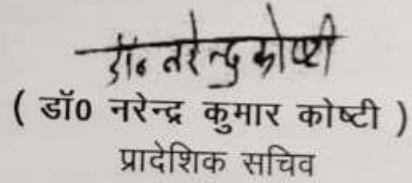 डॉ० नरेन्द्र कोष्टी
( डॉ0 नरेन्द्र कुमार कोष्टी )
प्रादेशिक सचिव